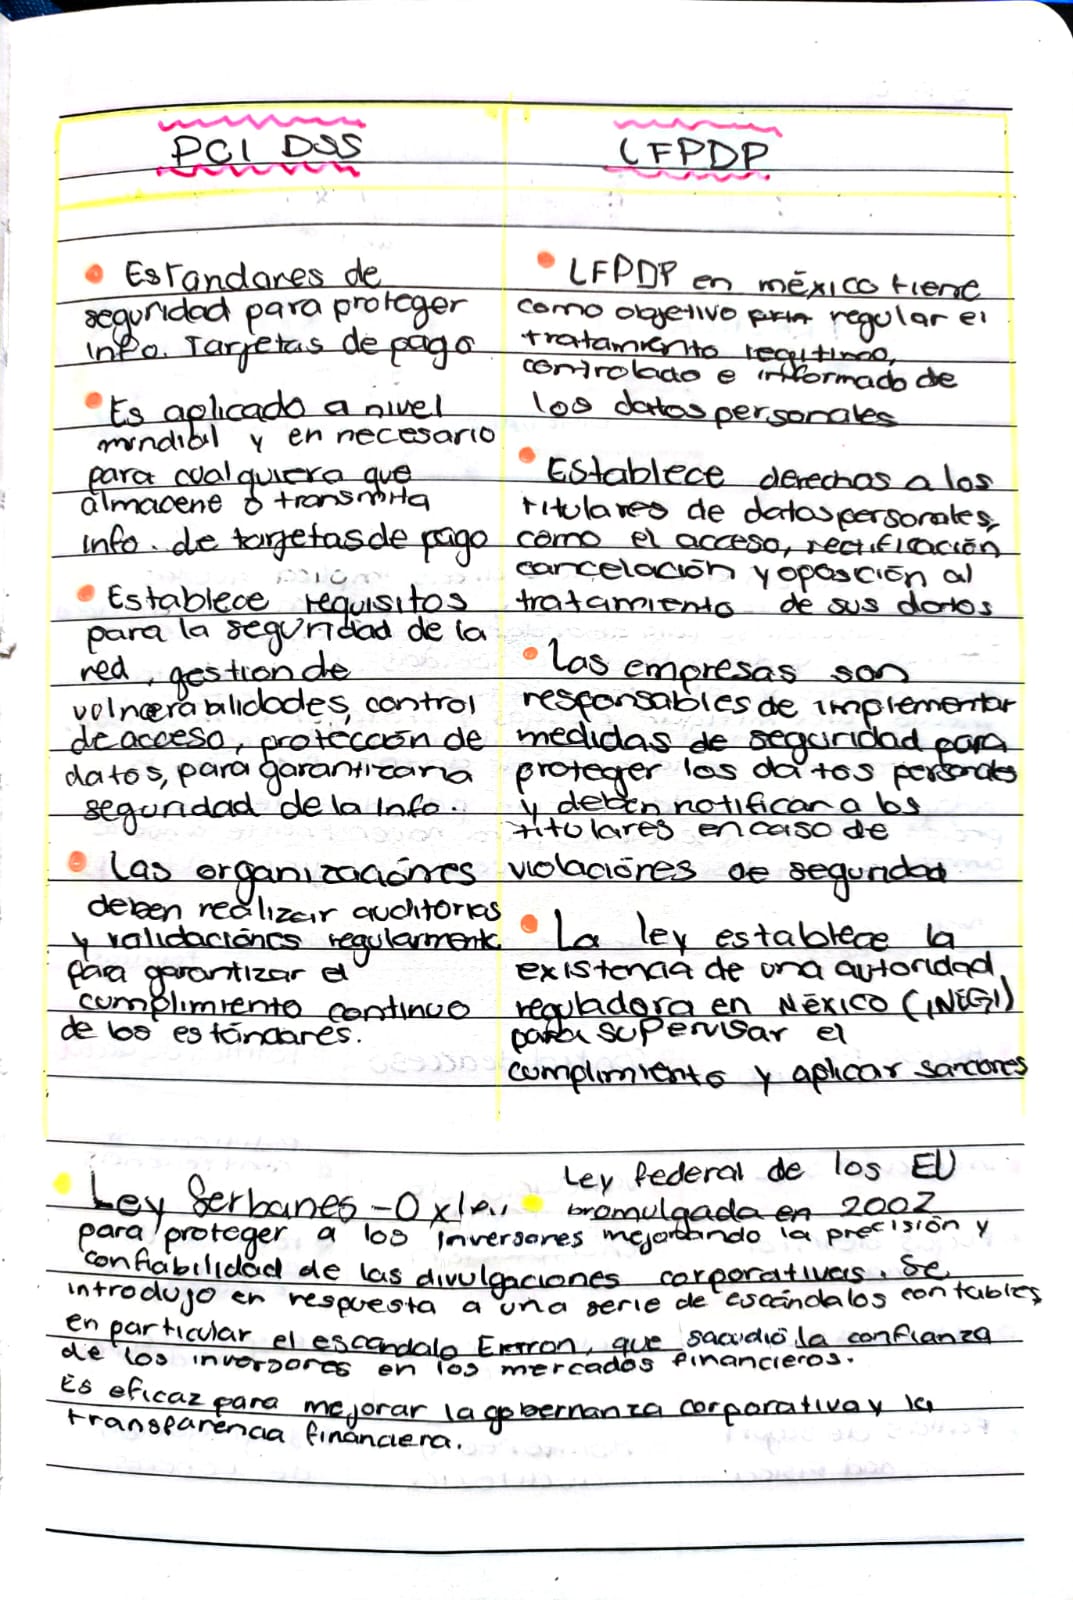 PCI DSS
LFPDP
• Estandares de
seguridad para proteger
info. Tarjetas de pago
• Es aplicado a nivel
mundial y en necesario
para cualquiera que
almacene o transmita
info. de targetas de pago
• Establece requisitos
para la seguridad de la
red, gestion de
vulnerabilidades, control
de acceso, protección de
datos, para garantizar la
seguridad de la info.
• Las organizaciónes
deben realizar auditorias
y validaciónes regularmente
para garantizar el
cumplimiento continuo
de los estándares.
• LFPDP en méxico tiene
como objetivo regular el
tratamiento legitimo,
controlado e informado de
los datos personales
• Establece derechos a los
titulares de datos personales,
como el acceso, rectificación
cancelación y oposción al
tratamiento de sus datos
• Las empresas son
responsables de implementar
medidas de seguridad para
proteger los datos personales
y deben notificar a los
titulares en caso de
violaciónes de seguridad
• La ley establece la
existencia de una autoridad
reguladora en México (INEGI)
para supervisar el
cumplimiento y aplicar
Ley Serbanes - Oxley • Ley federal de los EU
promulgada en 2002
para proteger a los inversores mejorando la precisión y
confiabilidad de las divulgaciones corporativas. Se
introdujo en respuesta a una serie de escándalos contables
en particular el escandalo Enron, que sacudió la confianza
de los inversores en los mercados financieros.
Es eficaz para mejorar la gobernanza corporativa y la
transparencia financiera.